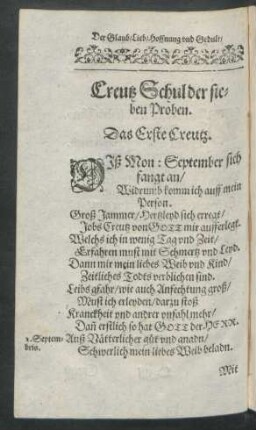 Der Glaub/Lieb/Hoffnung vnd Gedult/
Creutz Schul der sie-
ben Proben.
Das Erste Creutz.
DIß Mon: September sich
fangt an/
Widrumb komm ich auff mein
Person.
Groß Jammer/Hertzleyd sich erregt/
Jobs Creutz von GOTT mir aufferlegt.
Welchs ich in wenig Tag vnd Zeit/
Erfahren must mit Schmertz vnd Leyd.
Dann mir mein liebes Weib vnd Kind/
Zeitliches Todts verblichen sind.
Leibs gfahr/wie auch Anfechtung groß/
Must ich erleyden/darzu stoß
Kranckheit vnd andrer vnfahl mehr/
Dañ erstlich so hat GOTT der HERR.
1. Septem-
bris.
Auß Vätterlicher güt vnd gnadn/
Schwerlich mein liebes Weib beladn.
Mit